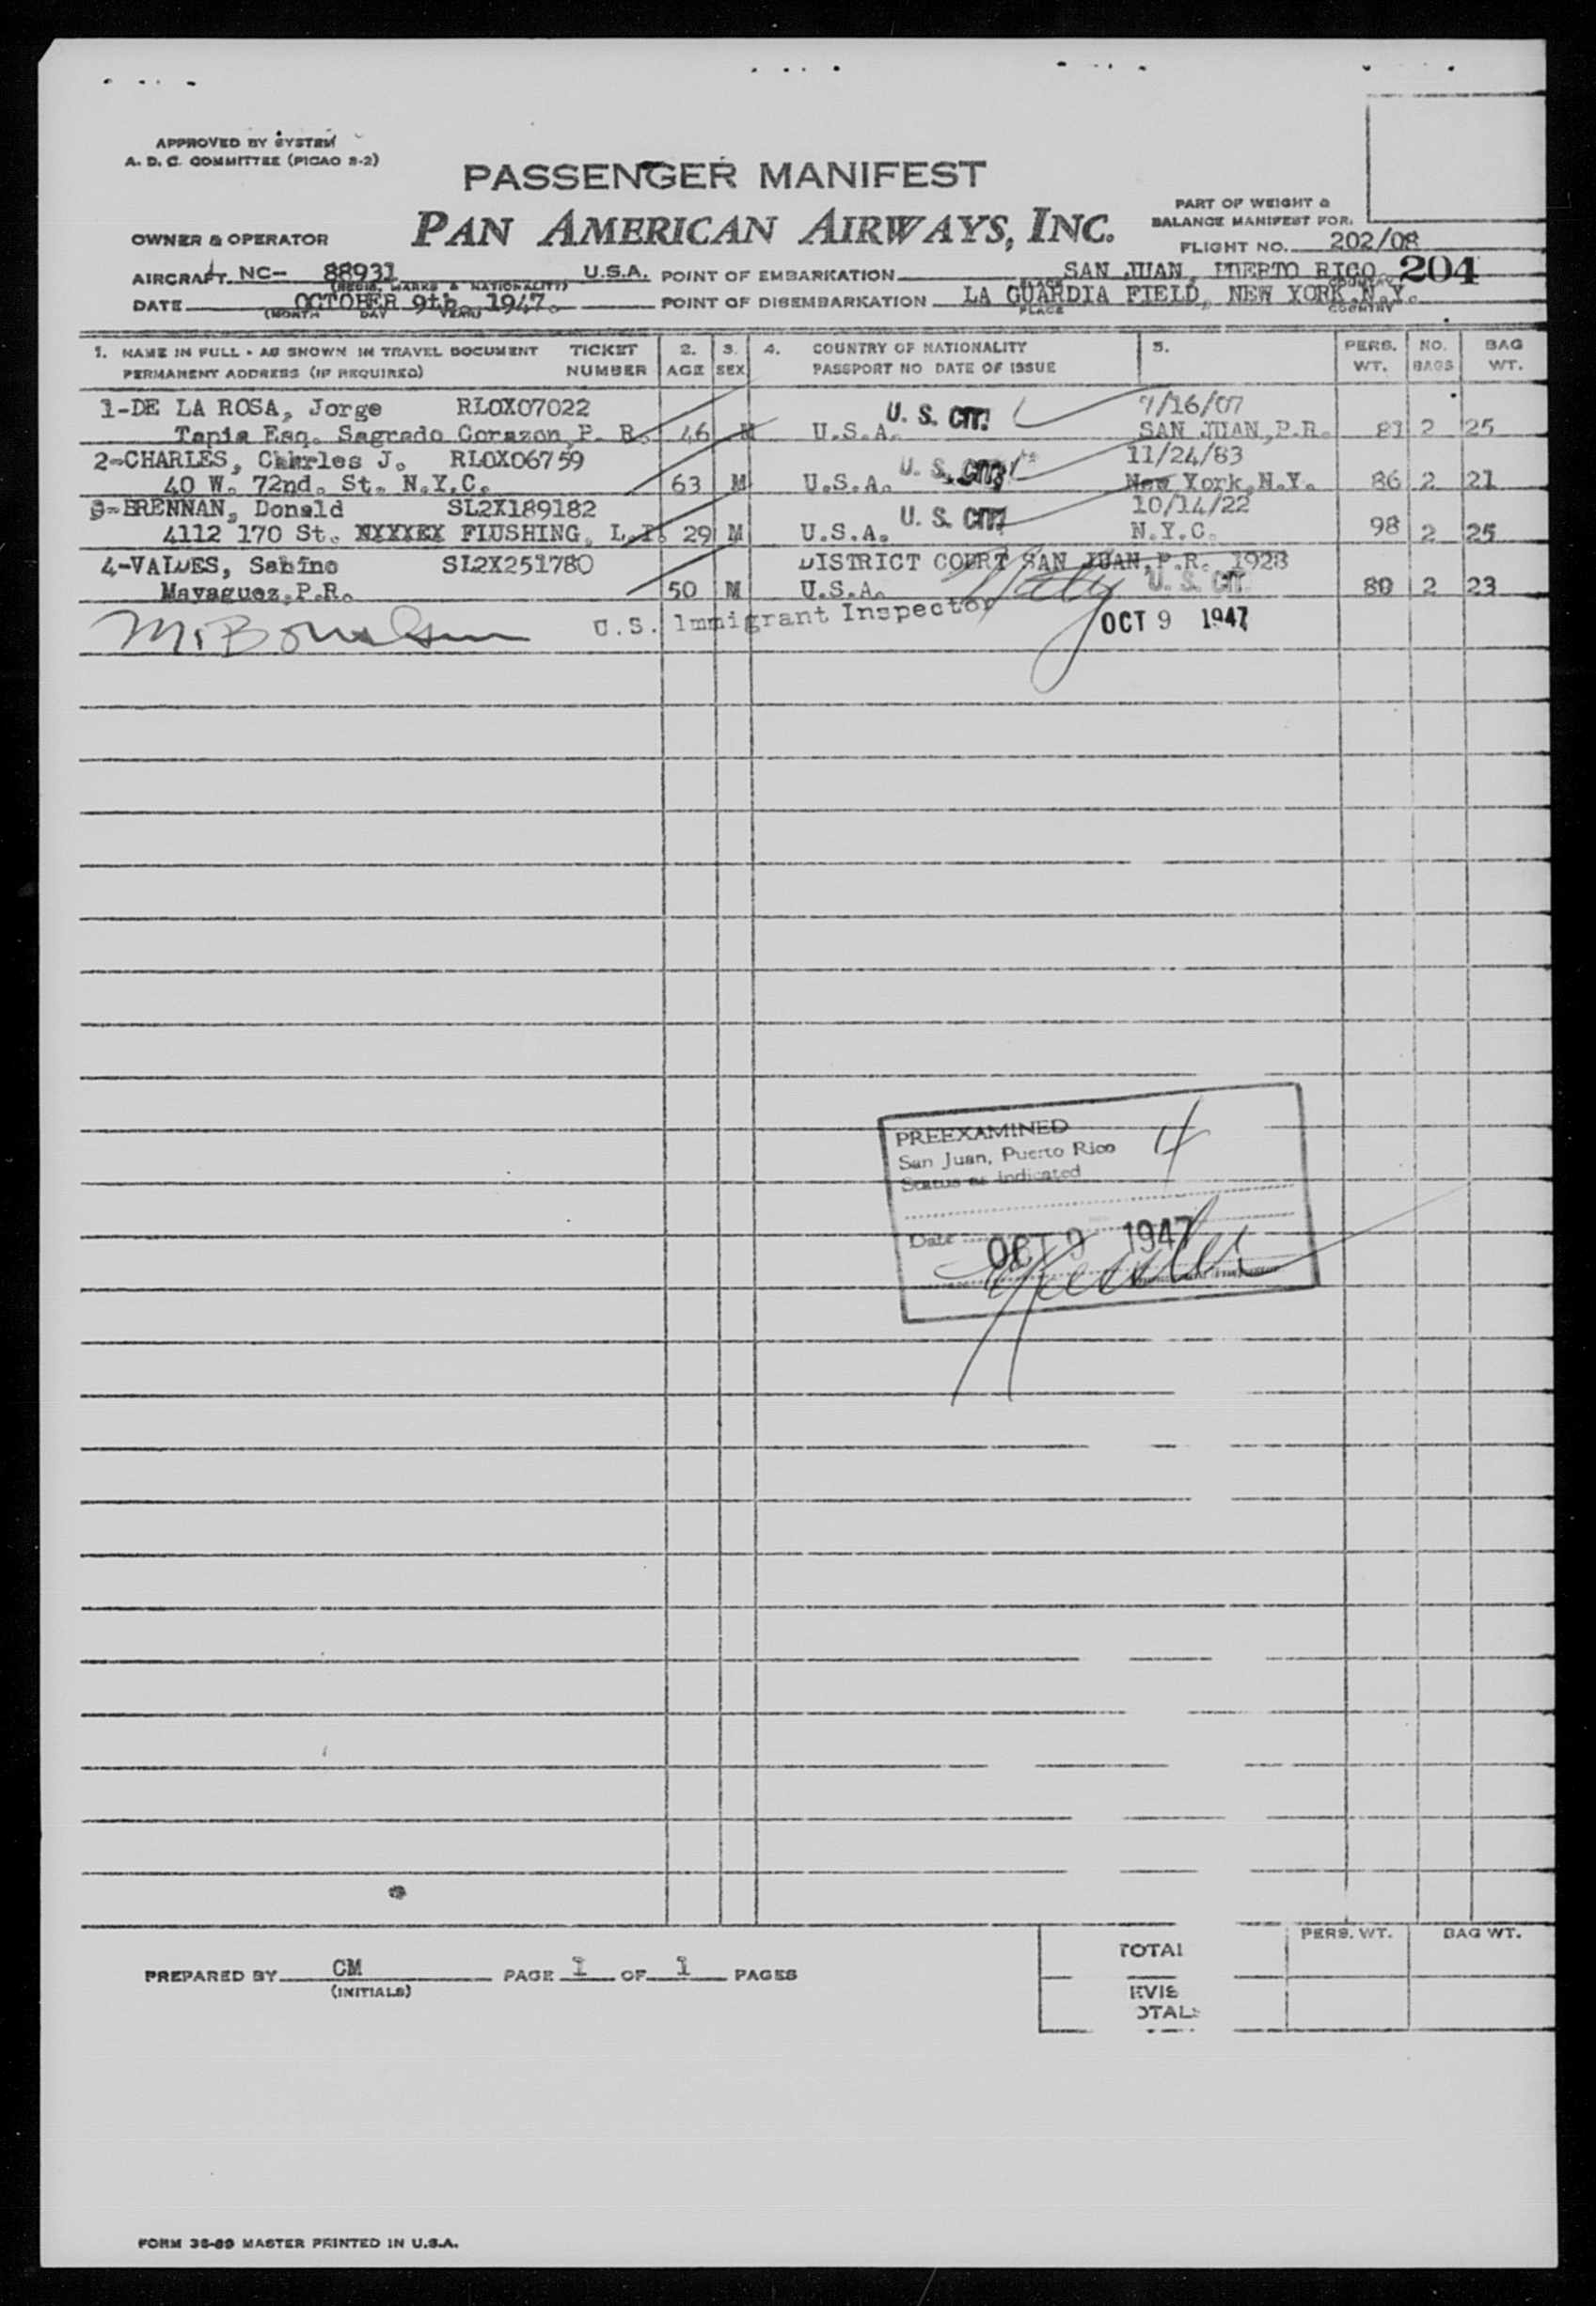 APPROVED BY SYSTEM
A. D. C. COMMITTEE (PICAO 8-2)
PASSENGER MANIFEST
PAN AMERICAN AIRWAYS, INC.
PART OF WEIGHT &
BALANCE MANIFEST FOR.
OWNER & OPERATOR
FLIGHT NO. 202/08
AIRCRAFT NC- 88931 U.S.A. POINT OF EMBARKATION SAN JUAN, PUERTO RICO 204
(REGIS. MARKS & NATIONALITY) PLACE COUNTRY
DATE OCTOBER 9th. 1947. POINT OF DISEMBARKATION LA GUARDIA FIELD, NEW YORK, N.Y.
(MONTH DAY YEAR) PLACE COUNTRY
1. NAME IN FULL - AS SHOWN IN TRAVEL DOCUMENT TICKET 2. 3. 4. COUNTRY OF NATIONALITY 5. PERS. NO. BAG
PERMANENT ADDRESS (IF REQUIRED) NUMBER AGE SEX PASSPORT NO DATE OF ISSUE WT. BAGS WT.
1-DE LA ROSA, Jorge RLOX07022 U. S. CIT. 7/16/07
Tapia Esq. Sagrado Corazon, P. R. 46 M U.S.A. SAN JUAN, P.R. 2 25
2-CHARLES, Charles J. RLOX06759 U. S. CIT. 11/24/83
40 W. 72nd. St. N.Y.C. 63 M U.S.A. New York, N.Y. 86 2 21
3-BRENNAN, Donald SL2X189182 U. S. CIT. 10/14/22
4112 170 St. FLUSHING, L.I. 29 M U.S.A. N.Y.C. 98 2 25
4-VALDES, Sabino SL2X251780 DISTRICT COURT SAN JUAN, P.R. 1928
Mayaguez, P.R. 50 M U.S.A. U. S. CIT. 80 2 23
U.S. Immigrant Inspector OCT 9 1947
PREEXAMINED 4
San Juan, Puerto Rico
Status as indicated
Date OCT 9 1947
PERS. WT. BAG WT.
TOTAL
PREPARED BY CM PAGE 1 OF 1 PAGES
(INITIALS)
EVIS
OTALS
FORM 38-89 MASTER PRINTED IN U.S.A.